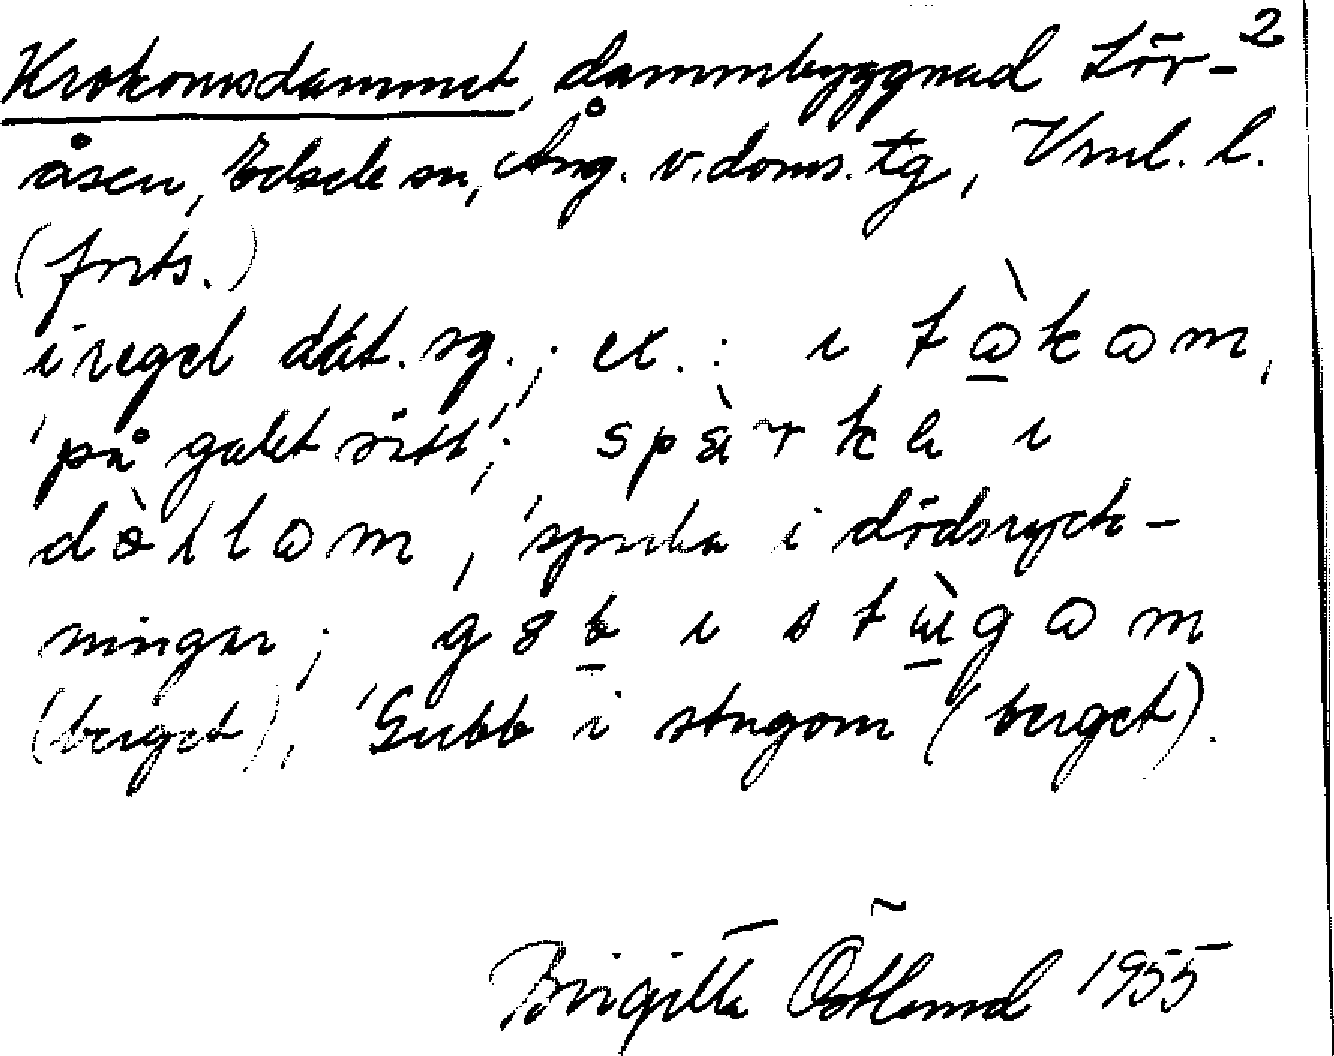 Krokomsdammet, dammbyggnad Lör- 2
åsen, Edsele sn, Ång. v. doms. tg, Vnml. l.
(forts.)
i regel dat. sg.; ex.: ι t ὼ k ω m,
'på galet sätt'; s p à r k a ι
d ə̀ l l ω m, 'sparka i dödsryck-
ningar; g ɞ b ι s t ὼ g ω m
(berget), 'Gubb i stugom (berget).
Birgitta Östlund 1955